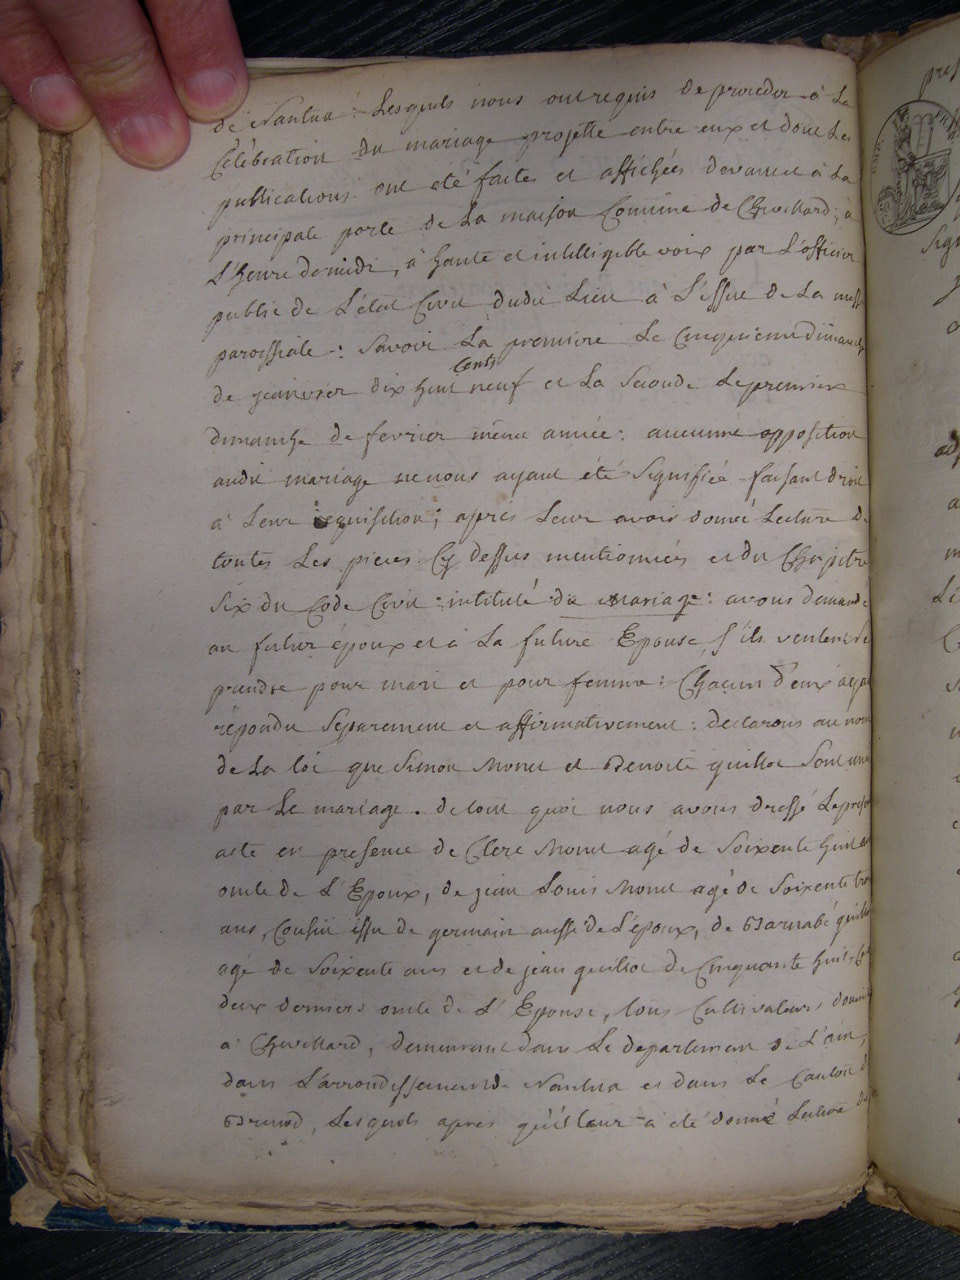 de Nantua Lesquels nous ont requis de proceder à La
Célébration du mariage projetté entre eux et dont Les
publications ont été faites et affichées devant à La
principale porte de La maison Comune de Chevillard; à
L'heure de midi, à haute et intelligible voix par L'officier
public de L'état Civil dudit Lieu à L'issue de La messe
paroissiale: Savoir La premiere Le Cinquieme dimanche
Cents
de janvier dix huit neuf et La Seconde Le premier
dimanche de fevrier même année: aucunne opposition
audit mariage ne nous ayant été Signifiée faisant droit
à Leur requisition; après Leur avoir donné Lecture de
toutes Les pieces Cy dessus mentionnées et du Chapitre
Six du Code Civil intitulé du mariage: avons demandé
au futur époux et à La future Epouse, s'ils veulent se
prendre pour mari et pour femme: Chacun d'eux ayant
répondu Séparement et affirmativement: declarons au nom
de La loi que Simon Monet et Benoite guillot Sont unis
par Le mariage. de tout quoi nous avons dressé Le present
acte en presence de Clere Monet agé de Soixente huit ans
oncle de L'Epoux, de jean Louis Monet agé de Soixente trois
ans, Cousin issu de germain aussi de L'époux, de Barnabé guillot
agé de Soixente ans et de jean guillot de Cinquante huit
deux derniers oncle de L'Epouse, tous Cultivateurs
à Chevillard, demeurant dans Le departement de L'ain,
dans L'arrondissement de Nantua et dans Le Canton de
Brenod, Lesquels après qu'il Leur a été donné Lecture